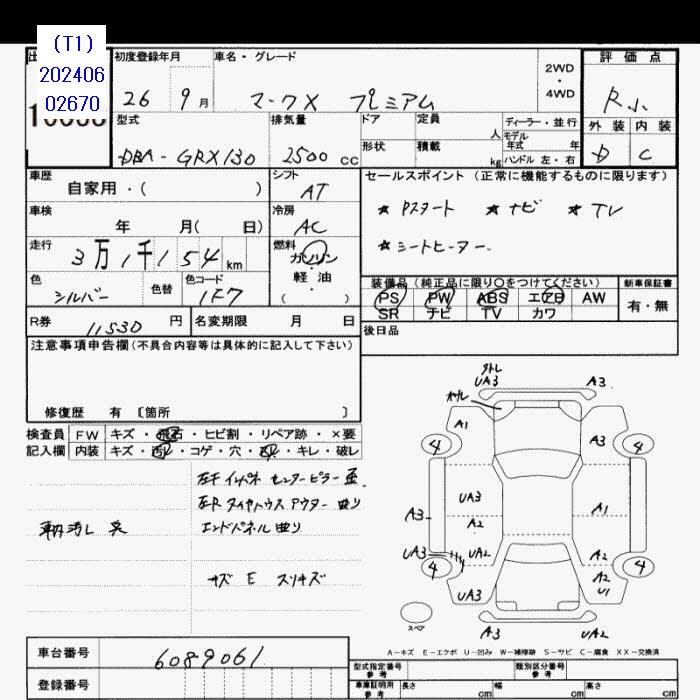 (T1)
202406
02670
初度登録年月
車名・グレード
26 9 月
マークX プレミアム
2WD
・
4WD
評価点
R小
外装 内装
D C
型式
DBA-GRX130
排気量
2500 cc
ドア
形状
定員 人
積載 kg
ディーラー・並行
モデル
年式 年
ハンドル 左・右
車歴
自家用・( )
シフト
AT
車検
年 月( 日)
冷房
AC
走行
3万1千154 km
燃料
ガソリン
・
軽油
( )
色
シルバー
色替
色コード
1F7
R券 11530 円
名変期限 月 日
セールスポイント (正常に機能するものに限ります)
★ Pスタート ★ ナビ ★ TV
★ シートヒーター
装備品(純正品に限り○をつけてください)
新車保証書
PS PW ABS エアB AW
SR ナビ TV カワ
有・無
後日品
注意事項申告欄(不具合内容等は具体的に記入して下さい)
修復歴 有 〔箇所 〕
検査員 FW キズ・飛石・ヒビ割・リペア跡・×要
記入欄 内装 キズ・汚れ・コゲ・穴・・キレ・破レ
左F インパネ センターピラー
左R タイヤハウス アウター 曲り
エンドパネル曲り
キズ E スリキズ
UA3
A3
A1
A3
4
4
UA3
A2
A1
A3
UA3
UA2
A2
4
4
A2
U1
UA3
A3
UA2
スペア
A-キズ E-エクボ U-凹み W-補修跡 S-サビ C-腐食 XX-交換済
車台番号 6089061
登録番号
型式指定番号
参考
類別区分番号
参考
車庫証明用
参考
長さ cm 幅 cm 高さ cm